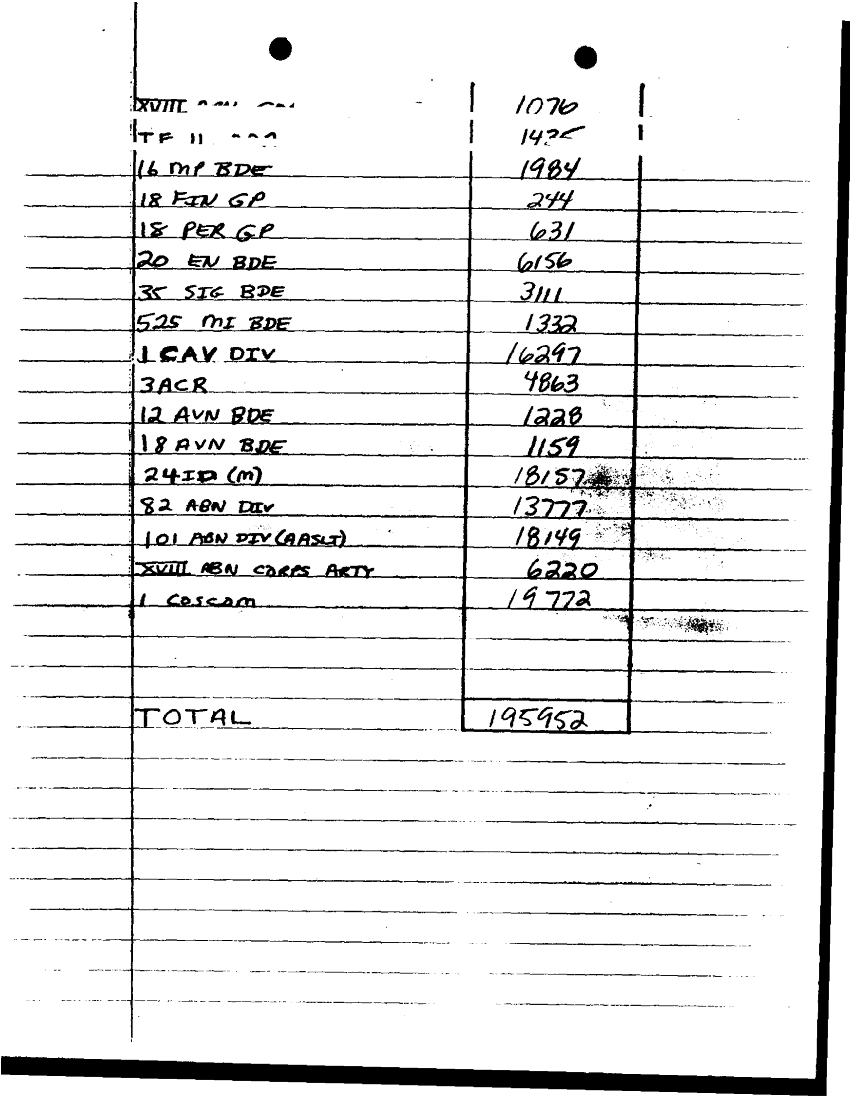 XVIII 1076
TF 11
16 MP BDE 1984
18 FIN GP 244
18 PER GP 631
20 EN BDE 6156
35 SIG BDE 3111
525 MI BDE 1332
1 CAV DIV 16297
3 ACR 4863
12 AVN BDE 1228
18 AVN BDE 1159
24 ID (M) 18157
82 ABN DIV 13777
101 ABN DIV (AASLT) 18149
XVIII ABN CORPS ARTY 6220
1 COSCOM 19772
TOTAL 195952